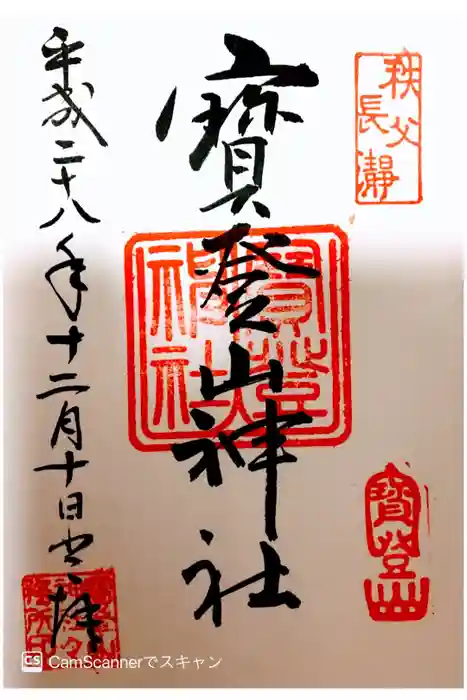 秩父
長瀞
寳登山神社
寳登山
神社
寳登山
平成二十八年十二月十日 登拝
CS CamScannerでスキャン